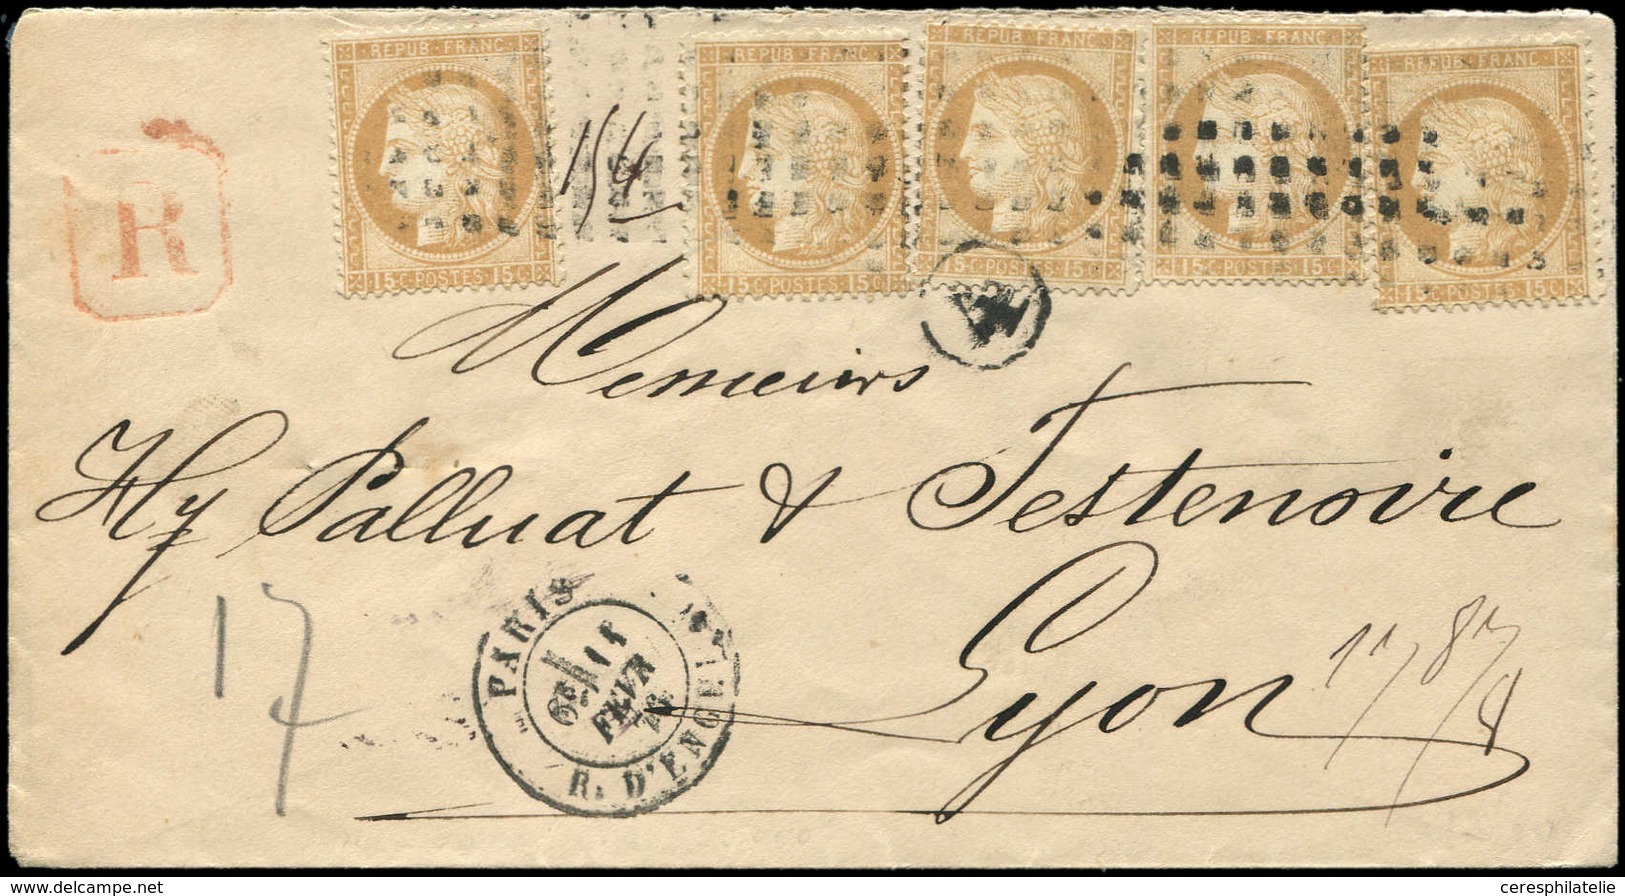 REPUB FRANC
15 C POSTES 15 C
REPUB FRANC
15 C POSTES 15 C
REPUB FRANC
15 C POSTES 15 C
REPUB FRANC
15 C POSTES 15 C
REPUB FRANC
15 C POSTES 15 C
154
R
A
Messieurs
Hy Palluat & Testenoire
Lyon
17
4
PARIS
6E
FEVR
R. D'ENGHIEN
cp www.delcampe.net
ceresphilatelie